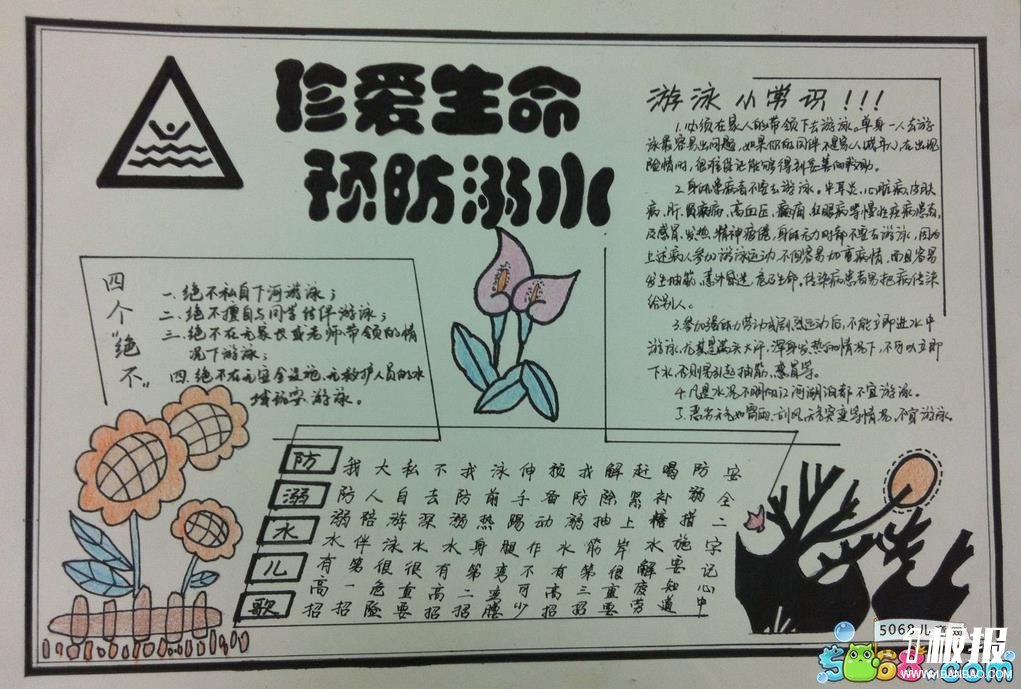 珍爱生命
预防溺水
游泳小常识!!!
1.必须在家人的带领下去游泳。单身一人去游
泳最容易出问题,如果你的同伴不是家人(成年人),在出现
险情时,很难保证能够得到妥善的救助。
2.身体患病者不要去游泳。中耳炎、心脏病、皮肤
病、肝、肾疾病、高血压、癫痫、红眼病等慢性疾病患者,
及感冒、发热、精神疲倦、身体无力时都不要去游泳,因为
上述病人参加游泳运动,不但容易加重病情,而且容易
发生抽筋、意外昏迷、危及生命。传染病患者易把病传染
给别人。
3.参加强体力劳动或剧烈运动后,不能立即进水中
游泳,尤其是满头大汗,浑身发热的情况下,不可以立即
下水,否则易引起抽筋、感冒等。
4.凡是水况不明的江河湖泊都不宜游泳。
5.恶劣天气如雷雨、刮风、天气突变等情况,不宜游泳。
四个“绝不”
一、绝不私自下河游泳;
二、绝不擅自与同学结伴游泳;
三、绝不在无家长或老师带领的情
况下游泳;
四、绝不在无安全设施、无救护人员的水
域游泳。
防溺水儿歌
我防溺水有高招
大人陪伴第一招
私自游泳很危险
不去深水很重要
我防溺水有高招
泳前热身第二招
伸手踢腿弯重腰
预备动作不可少
我防溺水有高招
解除抽筋第三招
赶紧上岸很重要
喝补糖水解疲劳
防溺措施要知道
安全二字记心中
5068儿童网
5068.com
板报
WWW.1BANBAO.COM